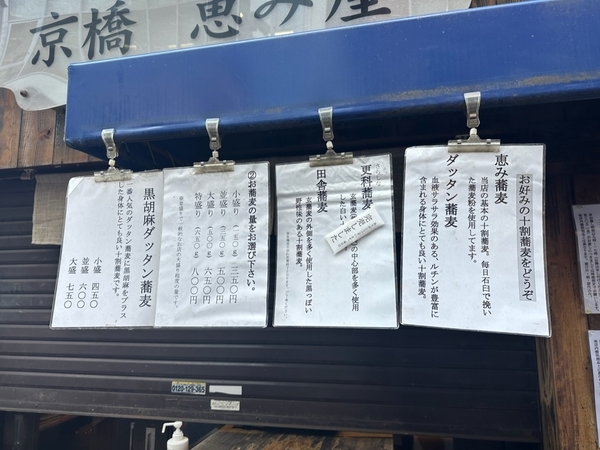 京橋 恵み屋
お好みの十割蕎麦をどうぞ
恵み蕎麦
当店の基本の十割蕎麦。毎日石臼で挽い
た蕎麦粉を使用してます。
ダッタン蕎麦
血液サラサラ効果のある、ルチンが豊富に
含まれる身体にとても良い十割蕎麦。
更科蕎麦
の中心部を多く使用
した白い
完売しました
田舎蕎麦
玄蕎麦の外側を多く使用した黒っぽい
野性味のある十割蕎麦。
②お蕎麦の量をお選び下さい。
小盛り
三五〇円
並盛り
五〇〇円
大盛り
六五〇円
特盛り
八〇〇円
黒胡麻ダッタン蕎麦
番人気のダッタン蕎麦に黒胡麻をプラス
した身体にとても良い十割蕎麦です。
小盛 四五〇
並盛 六〇〇
大盛 七五〇
0120-129-365